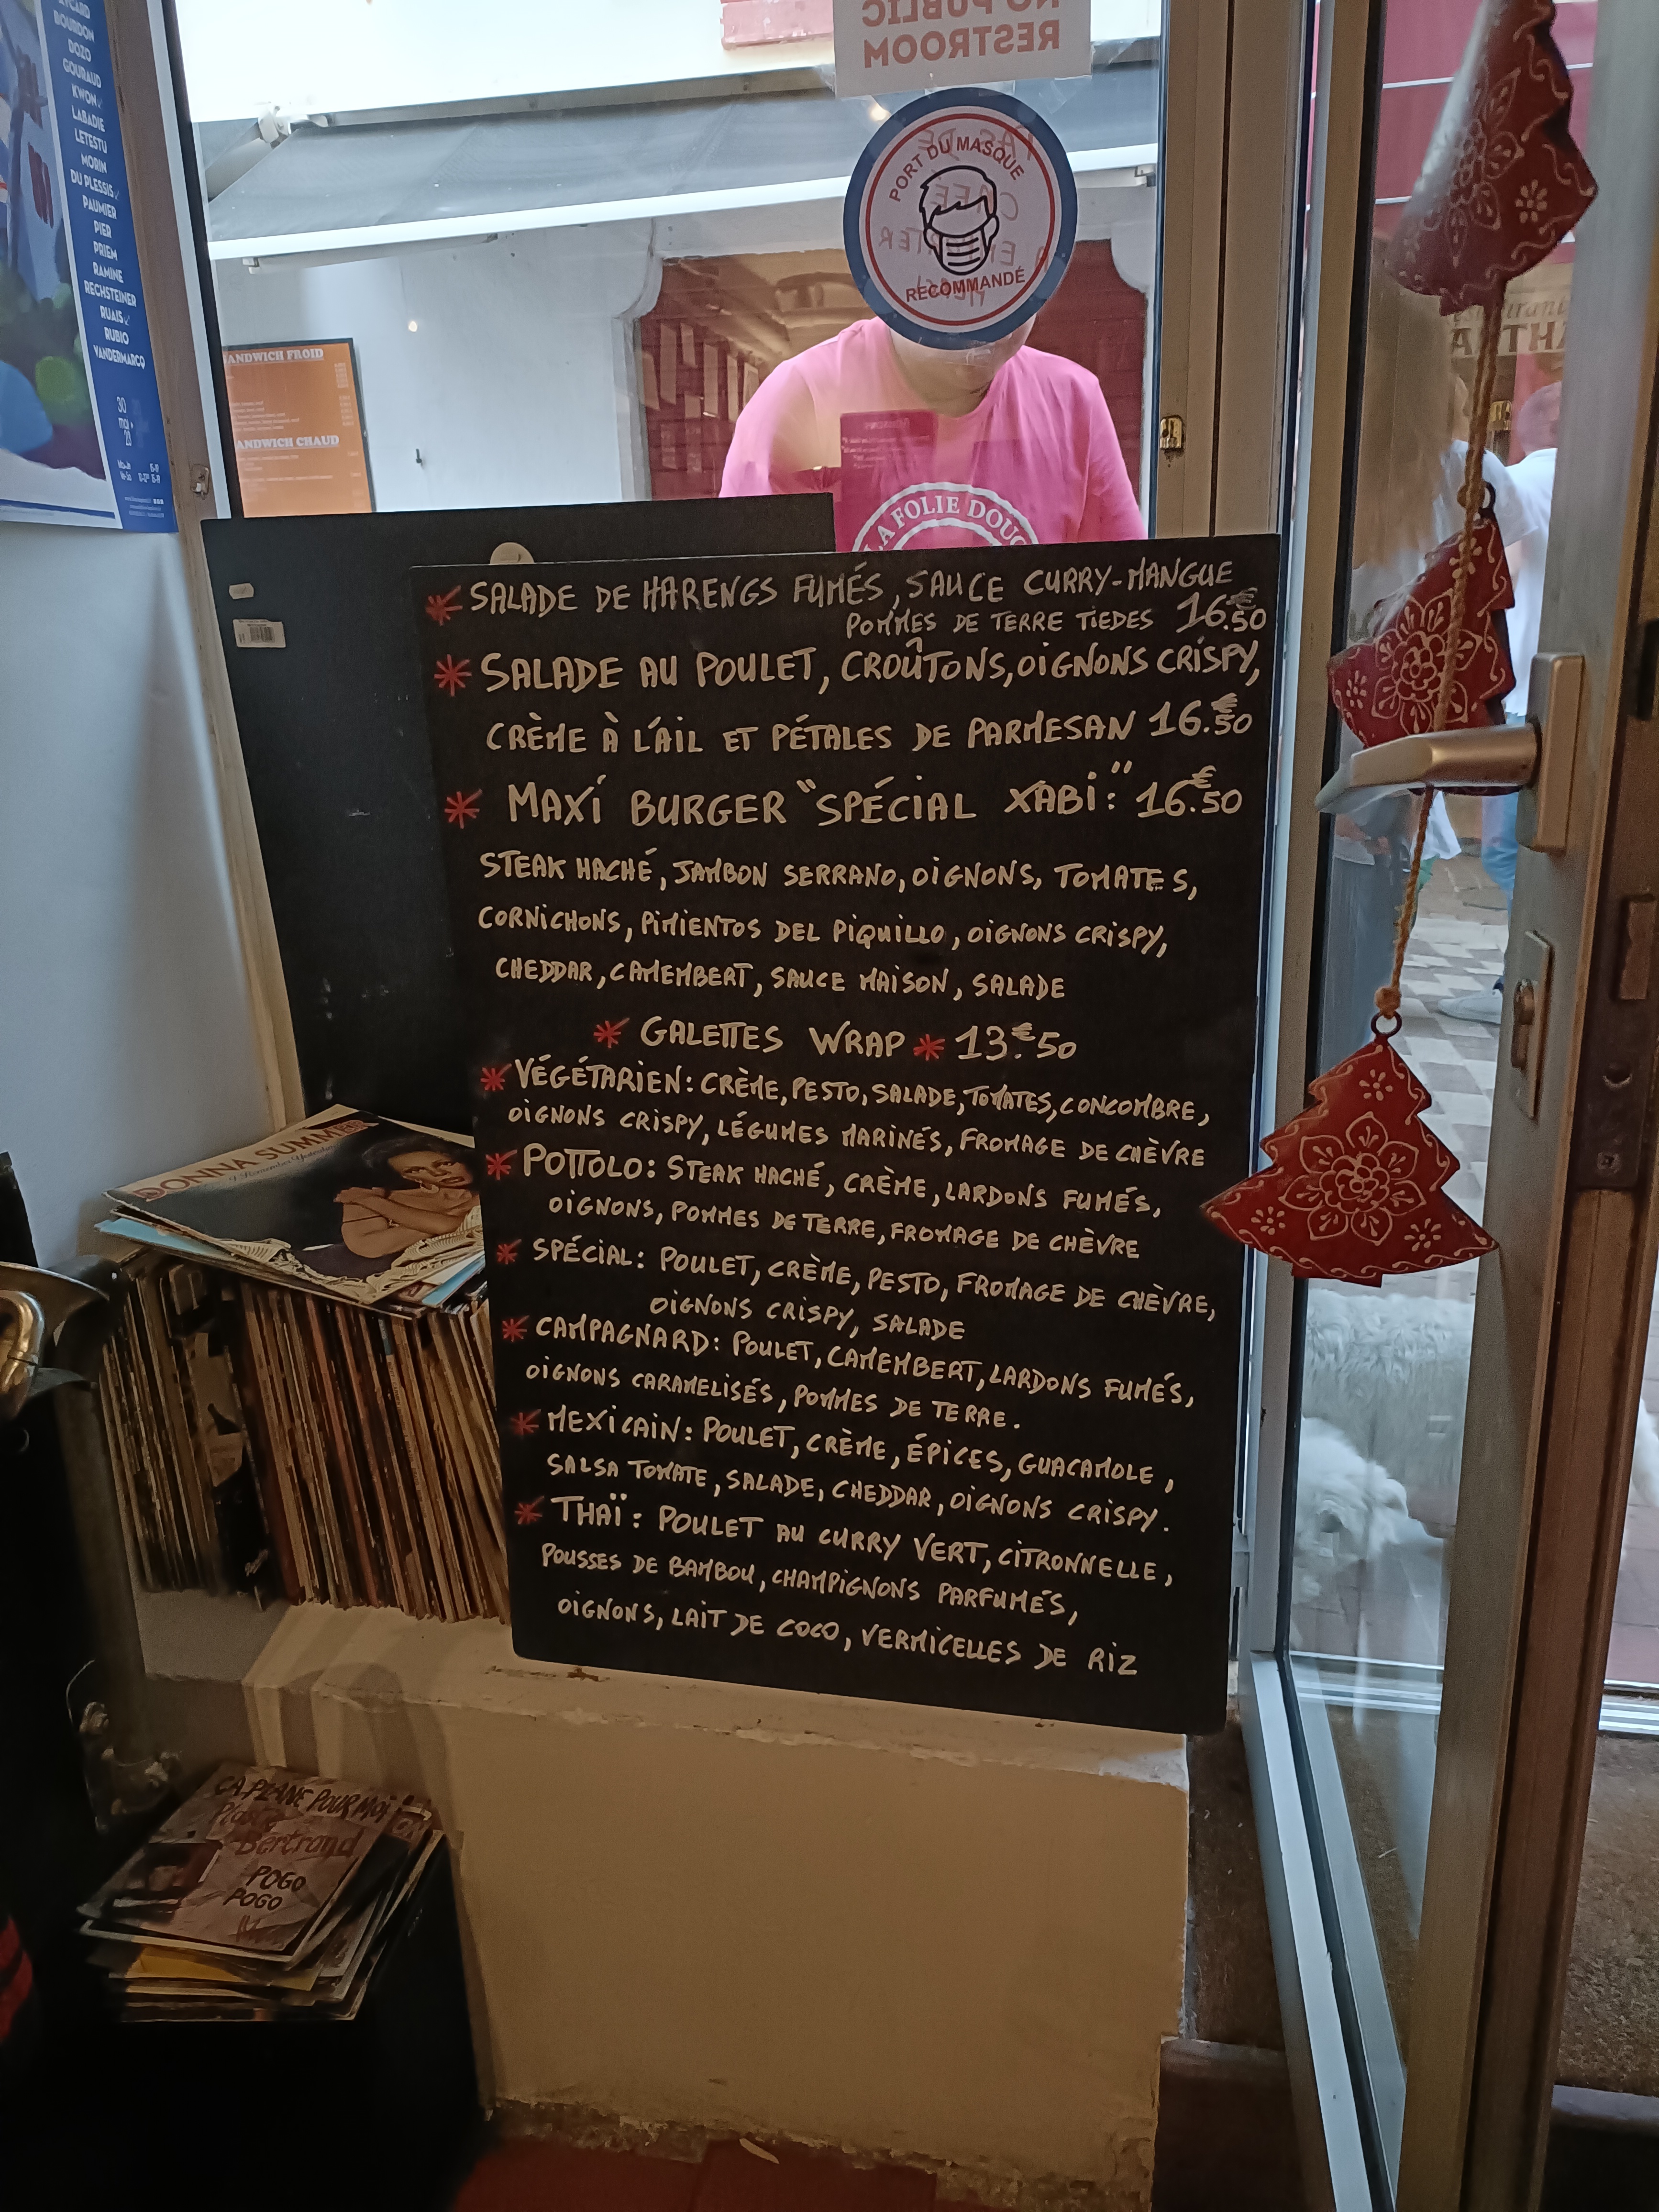 AYCARD
BOURDON
DOZO
GOURAUD
KWON
LABADIE
LETESTU
MORIN
DU PLESSIS
PAUMIER
PIER
PRIEM
RAMINE
RECHSTEINER
RUAIS
RUBIO
VANDERMARCQ
30
mai
NO PUBLIC
RESTROOM
PORT DU MASQUE
RECOMMANDÉ
SANDWICH FROID
SANDWICH CHAUD
LA FOLIE DOUC
SALADE DE HARENGS FUMÉS, SAUCE CURRY-MANGUE
POMMES DE TERRE TIEDES 16.€50
SALADE AU POULET, CROÛTONS, OIGNONS CRISPY,
CRÈME À L'AIL ET PÉTALES DE PARMESAN 16.€50
MAXI BURGER "SPÉCIAL XABI:" 16.€50
STEAK HACHÉ, JAMBON SERRANO, OIGNONS, TOMATES,
CORNICHONS, PIMIENTOS DEL PIQUILLO, OIGNONS CRISPY,
CHEDDAR, CAMEMBERT, SAUCE MAISON, SALADE
* GALETTES WRAP * 13.€50
* VÉGÉTARIEN: CRÈME, PESTO, SALADE, TOMATES, CONCOMBRE,
OIGNONS CRISPY, LÉGUMES MARINÉS, FROMAGE DE CHÈVRE
* POTTOLO: STEAK HACHÉ, CRÈME, LARDONS FUMÉS,
OIGNONS, POMMES DE TERRE, FROMAGE DE CHÈVRE
* SPÉCIAL: POULET, CRÈME, PESTO, FROMAGE DE CHÈVRE,
OIGNONS CRISPY, SALADE
* CAMPAGNARD: POULET, CAMEMBERT, LARDONS FUMÉS,
OIGNONS CARAMELISÉS, POMMES DE TERRE.
* MEXICAIN: POULET, CRÈME, ÉPICES, GUACAMOLE,
SALSA TOMATE, SALADE, CHEDDAR, OIGNONS CRISPY.
* THAÏ: POULET AU CURRY VERT, CITRONNELLE,
POUSSES DE BAMBOU, CHAMPIGNONS PARFUMÉS,
OIGNONS, LAIT DE COCO, VERMICELLES DE RIZ
DONNA SUMMER
I Remember Yesterday
CA PLANE POUR MOI
Plastic
Bertrand
POGO
POGO